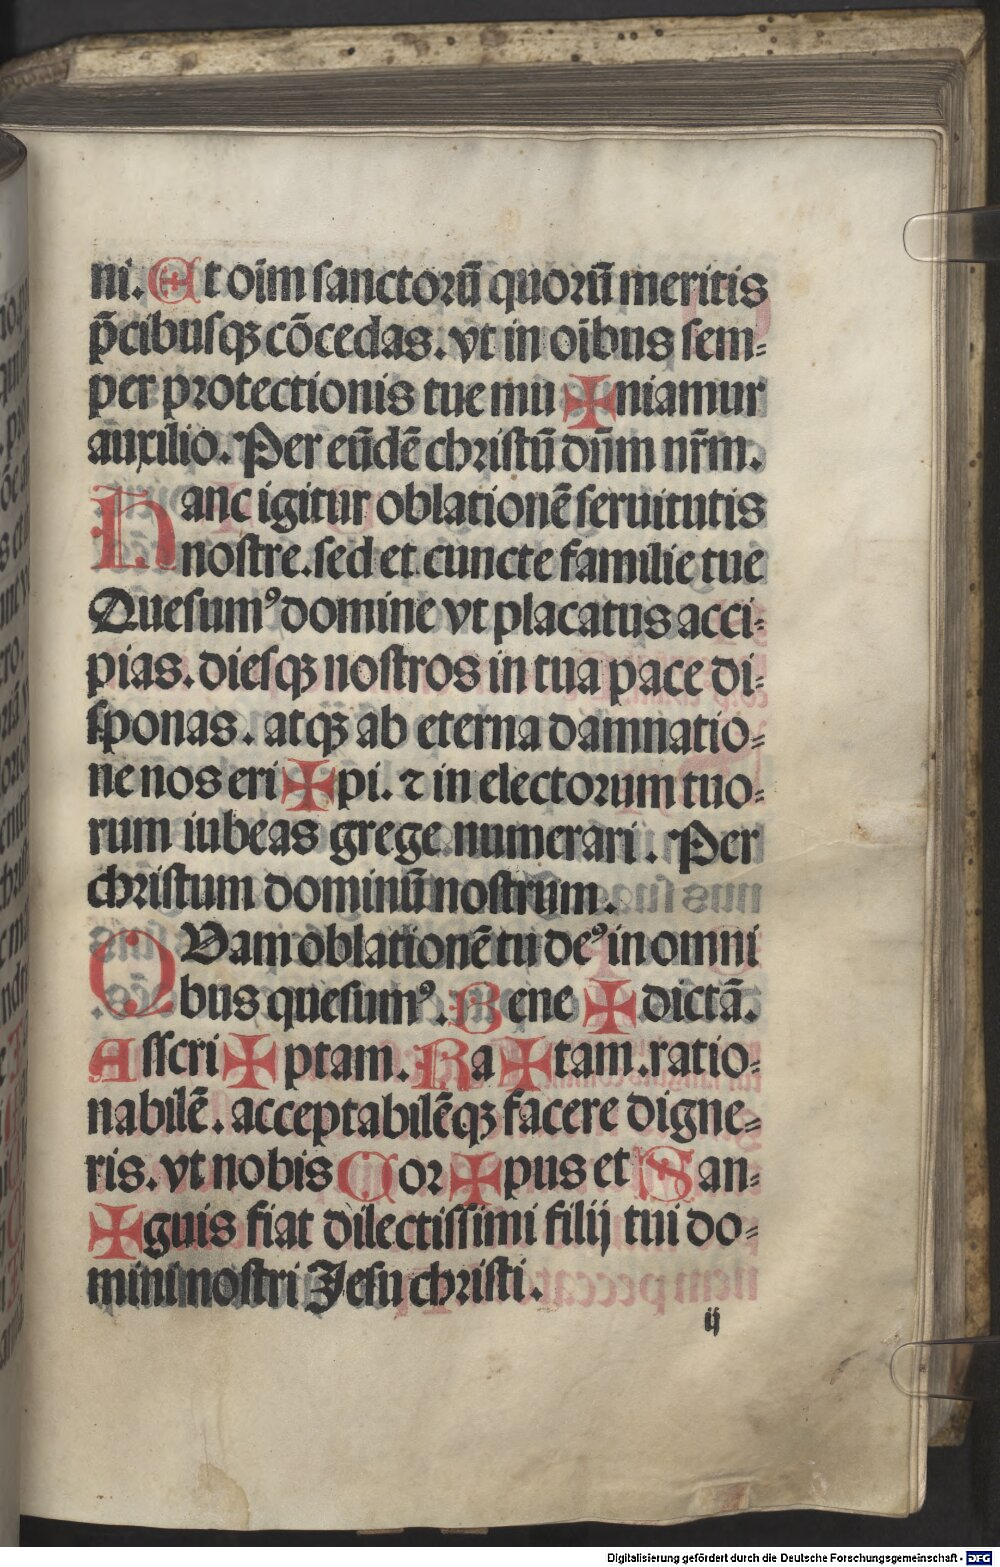 ni. Et oĩm sanctorũ quorũ meritis
p̃cibusqꝫ cõcedas. vt in oĩbus sem⸗
per protectionis tue mu ✠ niamur
auxilio. Per eũdẽ christũ dñm nr̃m.
Hanc igitur oblationẽ seruitutis
nostre. sed et cuncte familie tue
Quesumꝰ domine vt placatus acci⸗
pias. diesqꝫ nostros in tua pace di⸗
sponas. atqꝫ ab eterna damnatio⸗
ne nos eri ✠ pi. ⁊ in electorum tuo⸗
rum iubeas grege numerari. Per
christum dominũ nostrum.
QVam oblationẽ tu deꝰ in omni
bus quesumꝰ. Bene ✠ dictã.
Asscri ✠ ptam. Ra ✠ tam. ratio⸗
nabilẽ. acceptabilẽqꝫ facere digne⸗
ris. vt nobis Cor ✠ pus et San⸗
✠ guis fiat dilectissimi filij tui do⸗
mini nostri Jesu christi.
ij
Digitalisierung gefördert durch die Deutsche Forschungsgemeinschaft - DFG